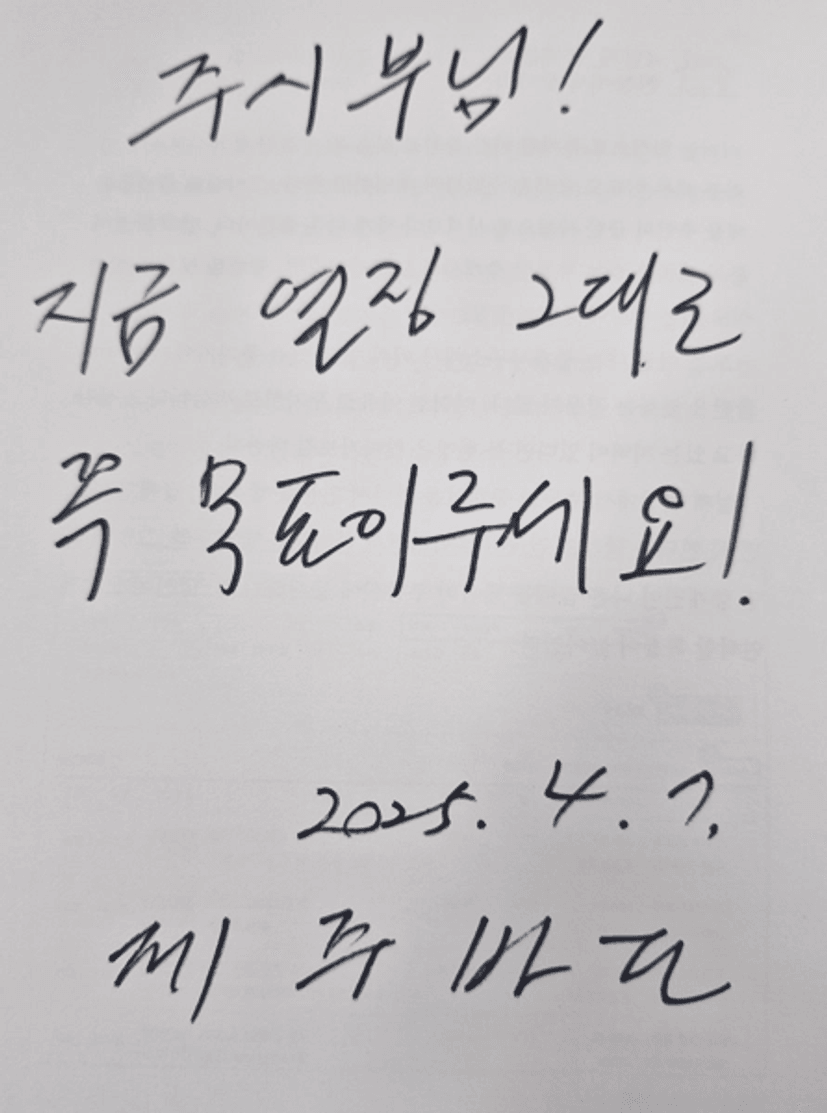 주시부님!
지금 열정 그대로
꼭 목표이루세요!
2025. 4. 7.
제주바다